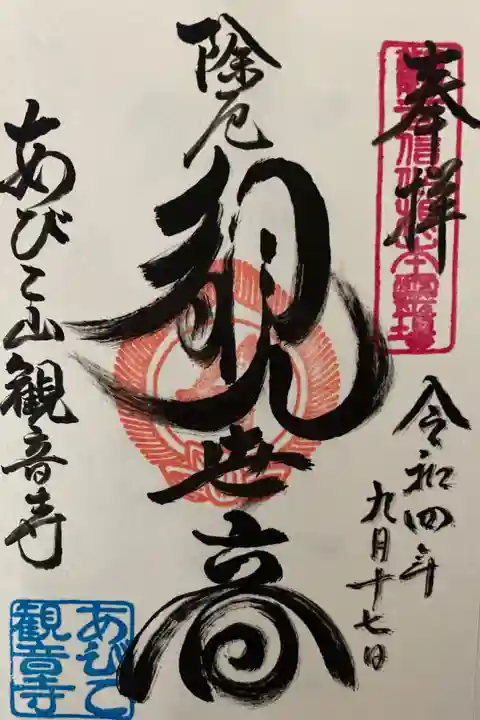 奉拝
令和四年
九月十七日
除厄
観世音
あびこ山観音寺
あびこ
観音寺